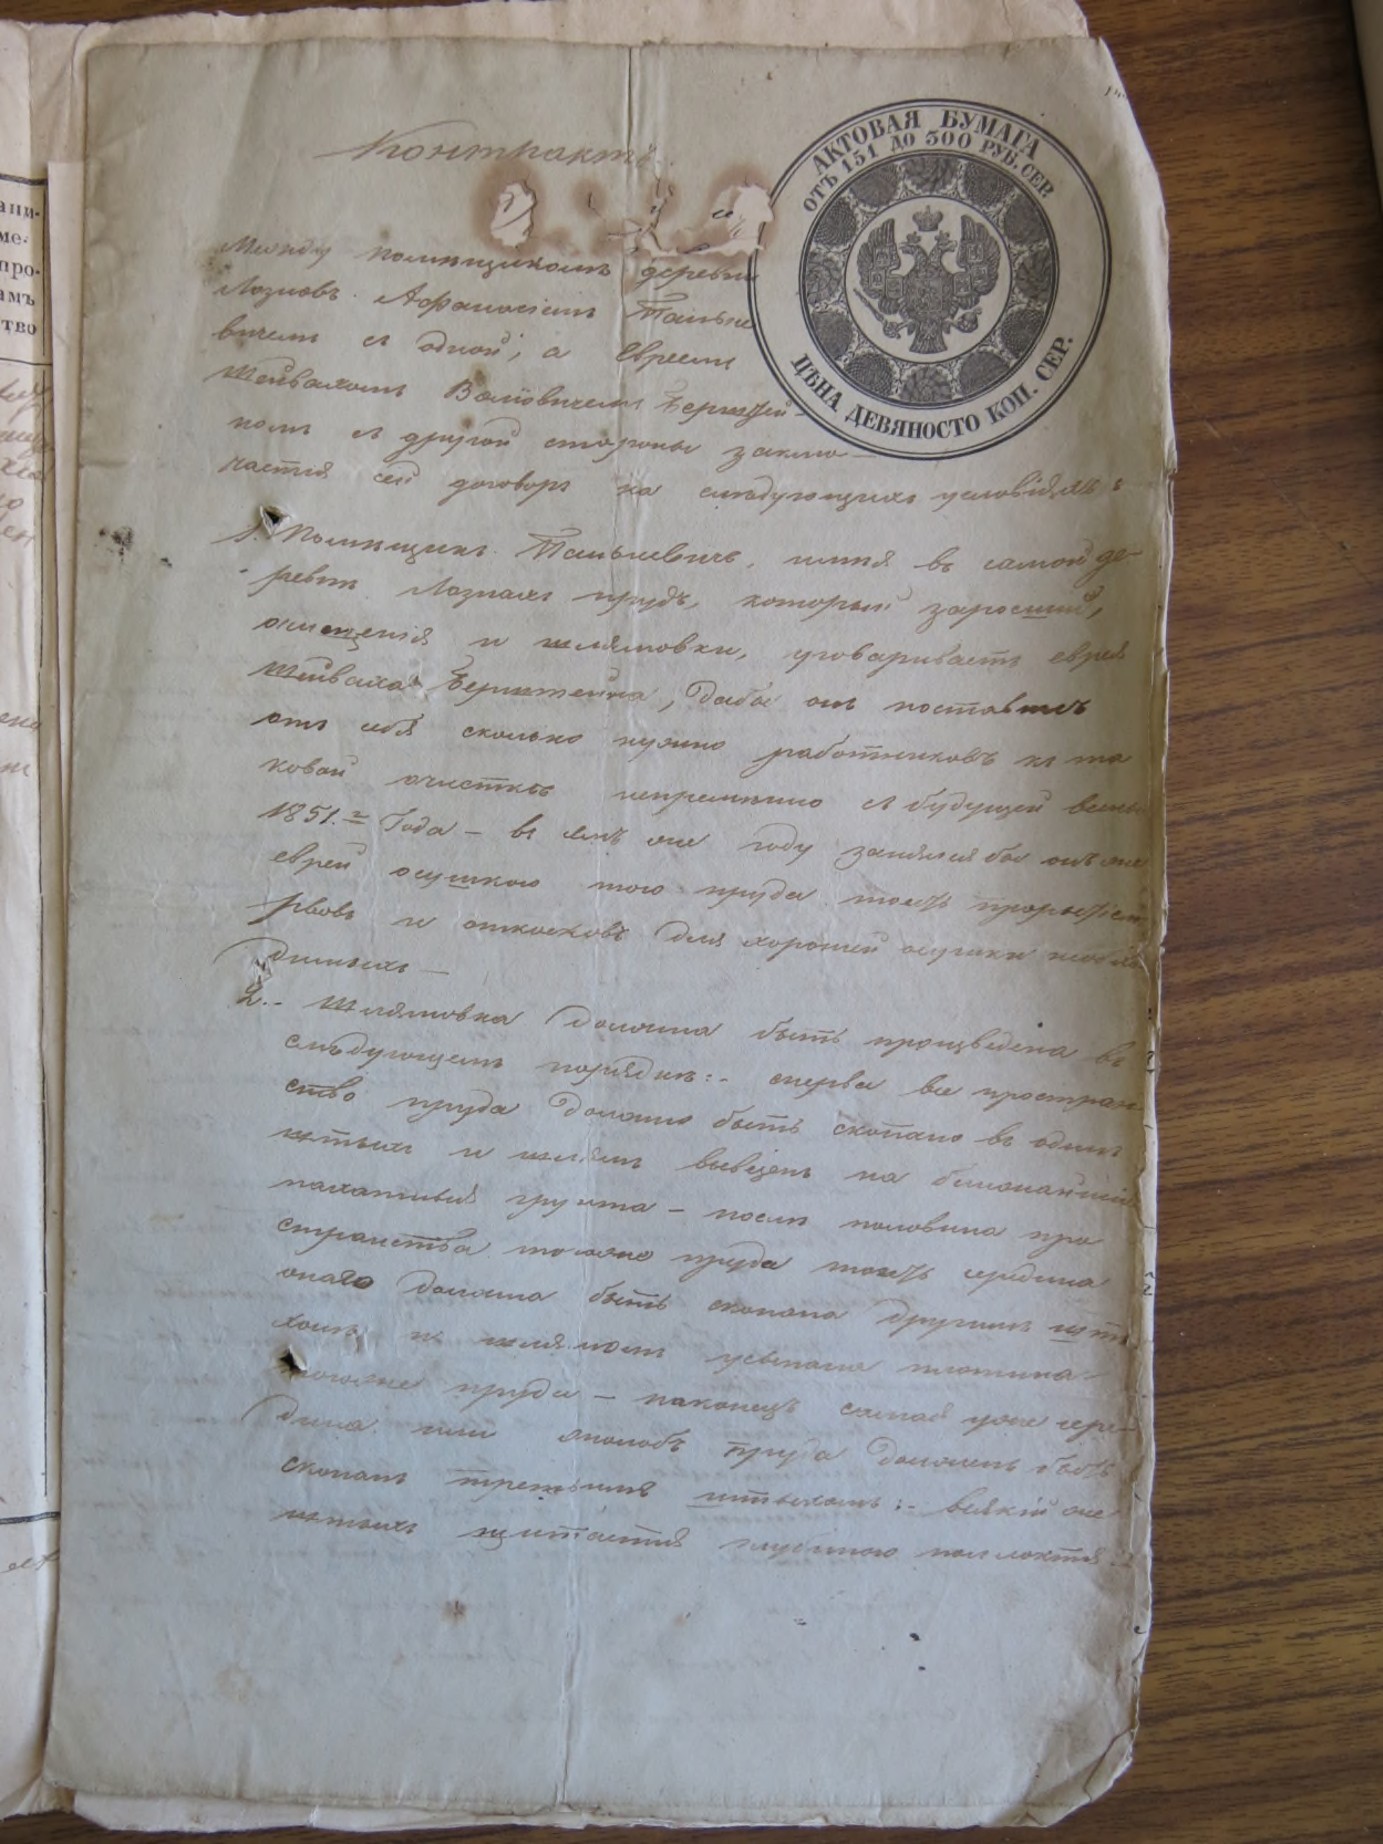 Контрактъ
АКТОВАЯ БУМАГА
ОТЪ 151 ДО 300 РУБ. СЕР.
ЦѢНА ДЕВЯНОСТО КОП. СЕР.
Между помѣщикомъ деревни
Лозновъ Афанасіемъ
вичемъ съ одной, а Евреемъ
съ другой стороны заклю-
чается сей договоръ на слѣдующихъ условіяхъ:
1. Помѣщикъ имѣя въ самой де-
ревнѣ Лознахъ прудъ, который заросшій,
и шлямовки, уговариваетъ еврея
Берштейна, дабы онъ поставилъ
отъ себя сколько нужно работниковъ къ та
ковой очисткѣ непремѣнно съ будущей весны
1851.г Года – въ семъ же году занялся бы онъ же
еврей осушкою того пруда тоесть
рвовъ и откосковъ для хорошей осушки необхо
димыхъ –
2.- Шлямовка должна быть произведена въ
слѣдующемъ порядкѣ:- сперва все простран
ство пруда должно быть скопано въ одинъ
штыхъ и шлямъ вывезенъ на
грунта – послѣ половина про
странства тогоже пруда тоесть средина
онаго должна быть скопана другимъ шты
хомъ и шлямомъ усыпана плотина
тогоже пруда – наконецъ самая уже сере-
дина или жолобъ пруда долженъ быть
скопанъ третьимъ штыхомъ:- всякій же
штыхъ щитается глубиною полъ локтя
ани-
ме-
про-
амъ
тво